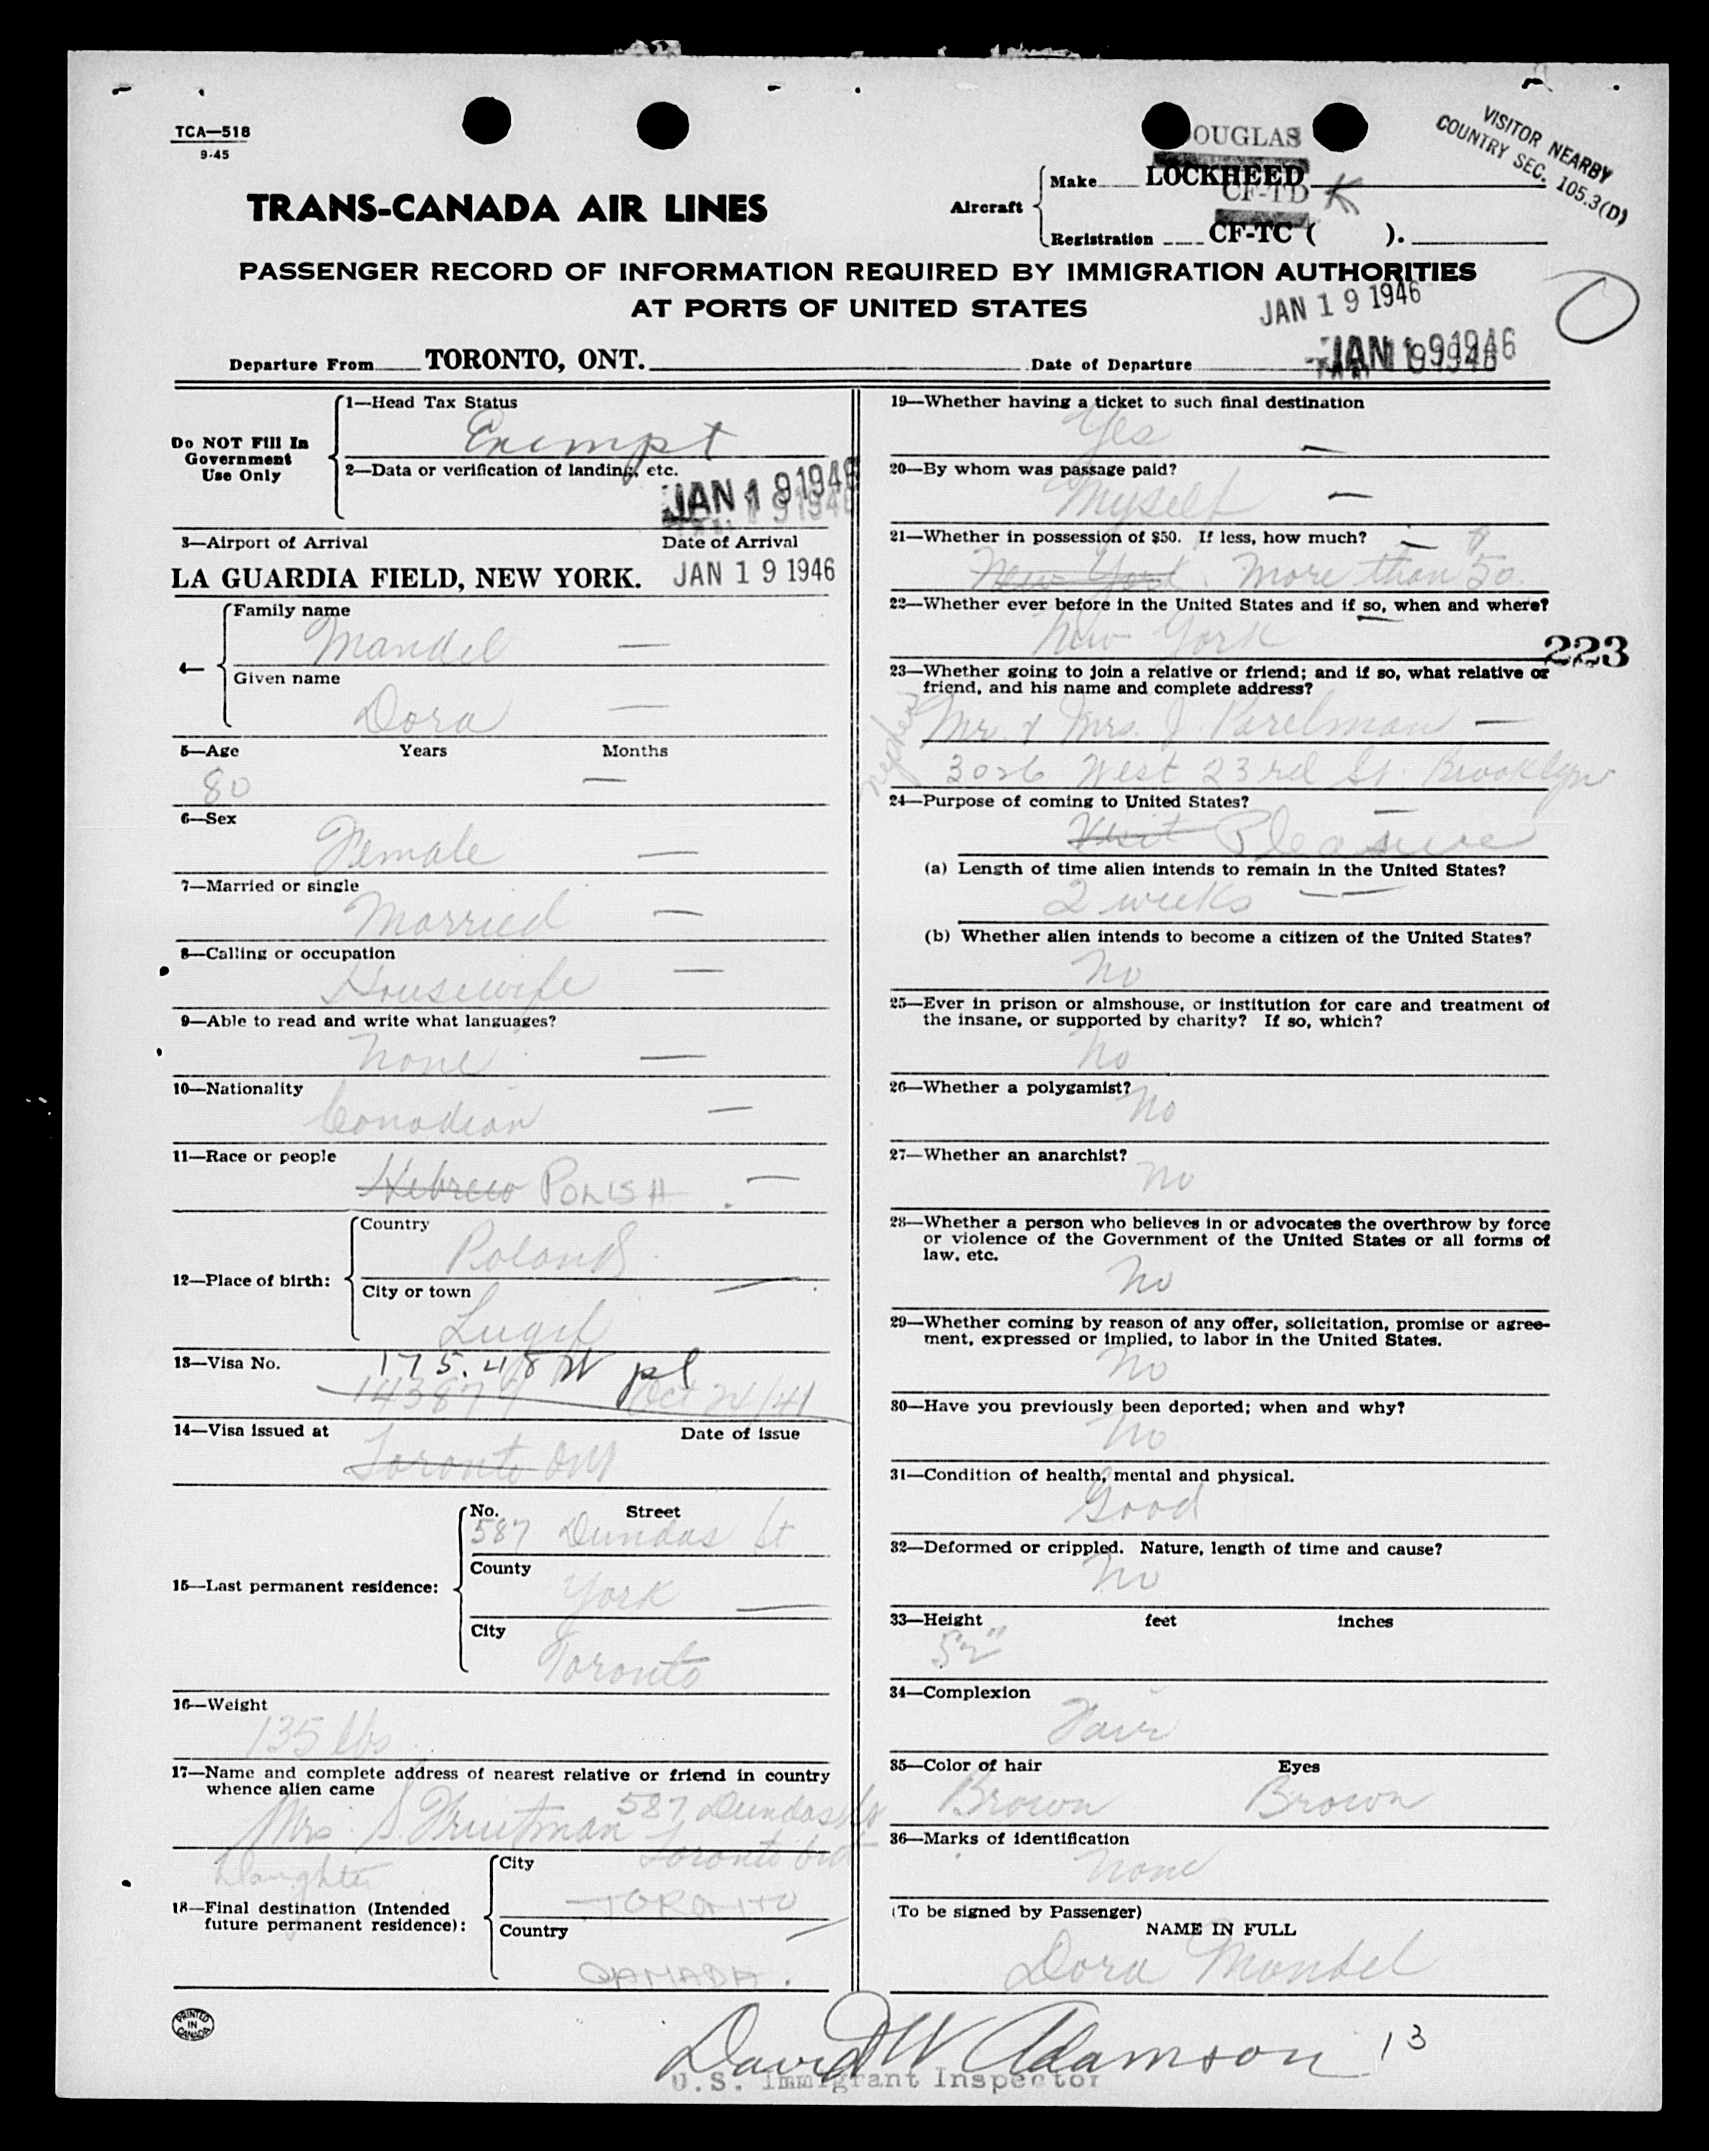 TCA—518
9-45
OUGLAS
VISITOR NEARBY
COUNTRY SEC. 105.3(D)
TRANS-CANADA AIR LINES
Aircraft
Make LOCKHEED
CF-TD K
Registration CF-TC ( ).
PASSENGER RECORD OF INFORMATION REQUIRED BY IMMIGRATION AUTHORITIES
AT PORTS OF UNITED STATES
JAN 19 1946
Departure From TORONTO, ONT. Date of Departure JAN 19 1946
Do NOT Fill In
Government
Use Only
1—Head Tax Status
Exempt
2—Data or verification of landing, etc.
JAN 19 1946
3—Airport of Arrival Date of Arrival
LA GUARDIA FIELD, NEW YORK. JAN 19 1946
4—
Family name
Mandel —
Given name
Dora —
5—Age Years Months
80 —
6—Sex
Female —
7—Married or single
Married —
8—Calling or occupation
Housewife —
9—Able to read and write what languages?
None —
10—Nationality
Canadian —
11—Race or people
Hebrew POLISH —
12—Place of birth:
Country
Poland
City or town
13—Visa No.
175.48
14387 Oct 24/41
14—Visa issued at Date of issue
Toronto Ont
15—Last permanent residence:
No. Street
587 Dundas St
County
York —
City
Toronto
16—Weight
135 lbs
17—Name and complete address of nearest relative or friend in country
whence alien came
Mrs. S. Fruitman 587 Dundas St
Toronto Ont
Daughter
18—Final destination (Intended
future permanent residence):
City
TORONTO
Country
CANADA.
PRINTED
IN
CANADA
19—Whether having a ticket to such final destination
Yes —
20—By whom was passage paid?
Myself —
21—Whether in possession of $50. If less, how much?
New York. More than $50.
22—Whether ever before in the United States and if so, when and where?
New York
223
23—Whether going to join a relative or friend; and if so, what relative or
friend, and his name and complete address?
nephew
Mr. & Mrs. J. Perelman —
3026 West 23rd St. Brooklyn
24—Purpose of coming to United States?
Visit Pleasure
(a) Length of time alien intends to remain in the United States?
2 weeks —
(b) Whether alien intends to become a citizen of the United States?
No
25—Ever in prison or almshouse, or institution for care and treatment of
the insane, or supported by charity? If so, which?
No
26—Whether a polygamist?
No
27—Whether an anarchist?
No
28—Whether a person who believes in or advocates the overthrow by force
or violence of the Government of the United States or all forms of
law, etc.
No
29—Whether coming by reason of any offer, solicitation, promise or agree-
ment, expressed or implied, to labor in the United States.
No
30—Have you previously been deported; when and why?
No
31—Condition of health, mental and physical.
Good
32—Deformed or crippled. Nature, length of time and cause?
No
33—Height feet inches
5'2"
34—Complexion
Fair
35—Color of hair Eyes
Brown Brown
36—Marks of identification
None
(To be signed by Passenger)
NAME IN FULL
Dora Mandel
David W Adamson 13
U.S. Immigrant Inspector